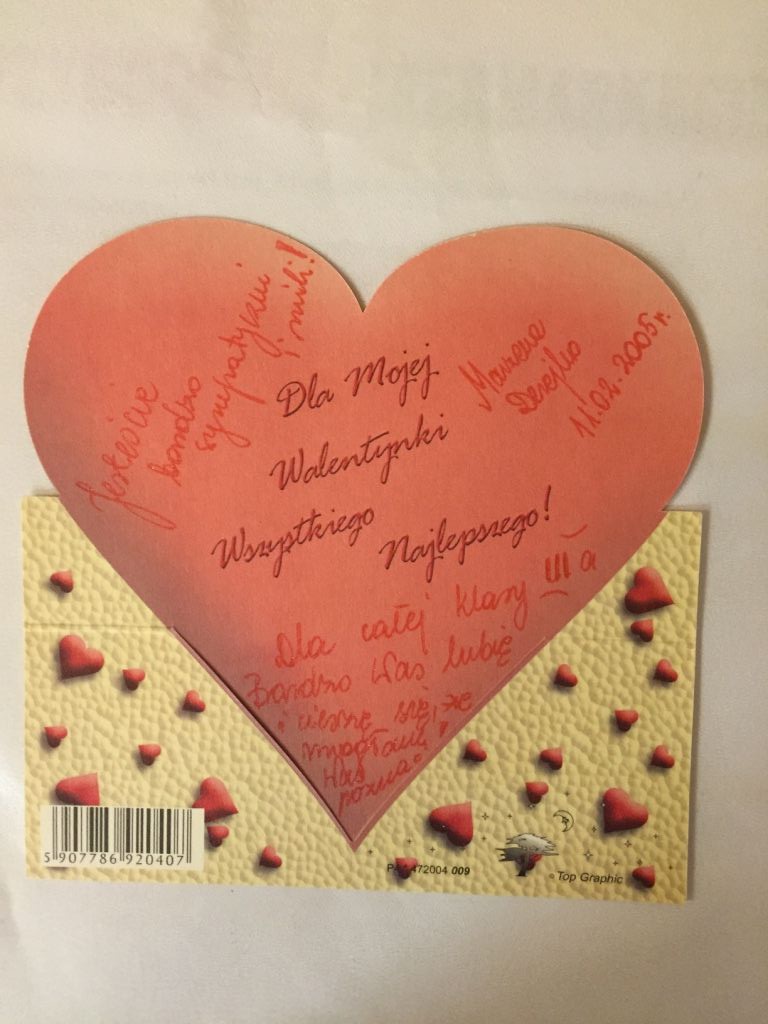 Jesteście
bardzo
sympatyczni
i mili!
Dla Mojej
Walentynki
Wszystkiego
Najlepszego!
Marzena
11.02.2005r.
Dla całej klasy III a
Bardzo Was lubię
i cieszę się, że
mogłam
Was
poznać
5 907786 920407
472004 009
Top Graphic